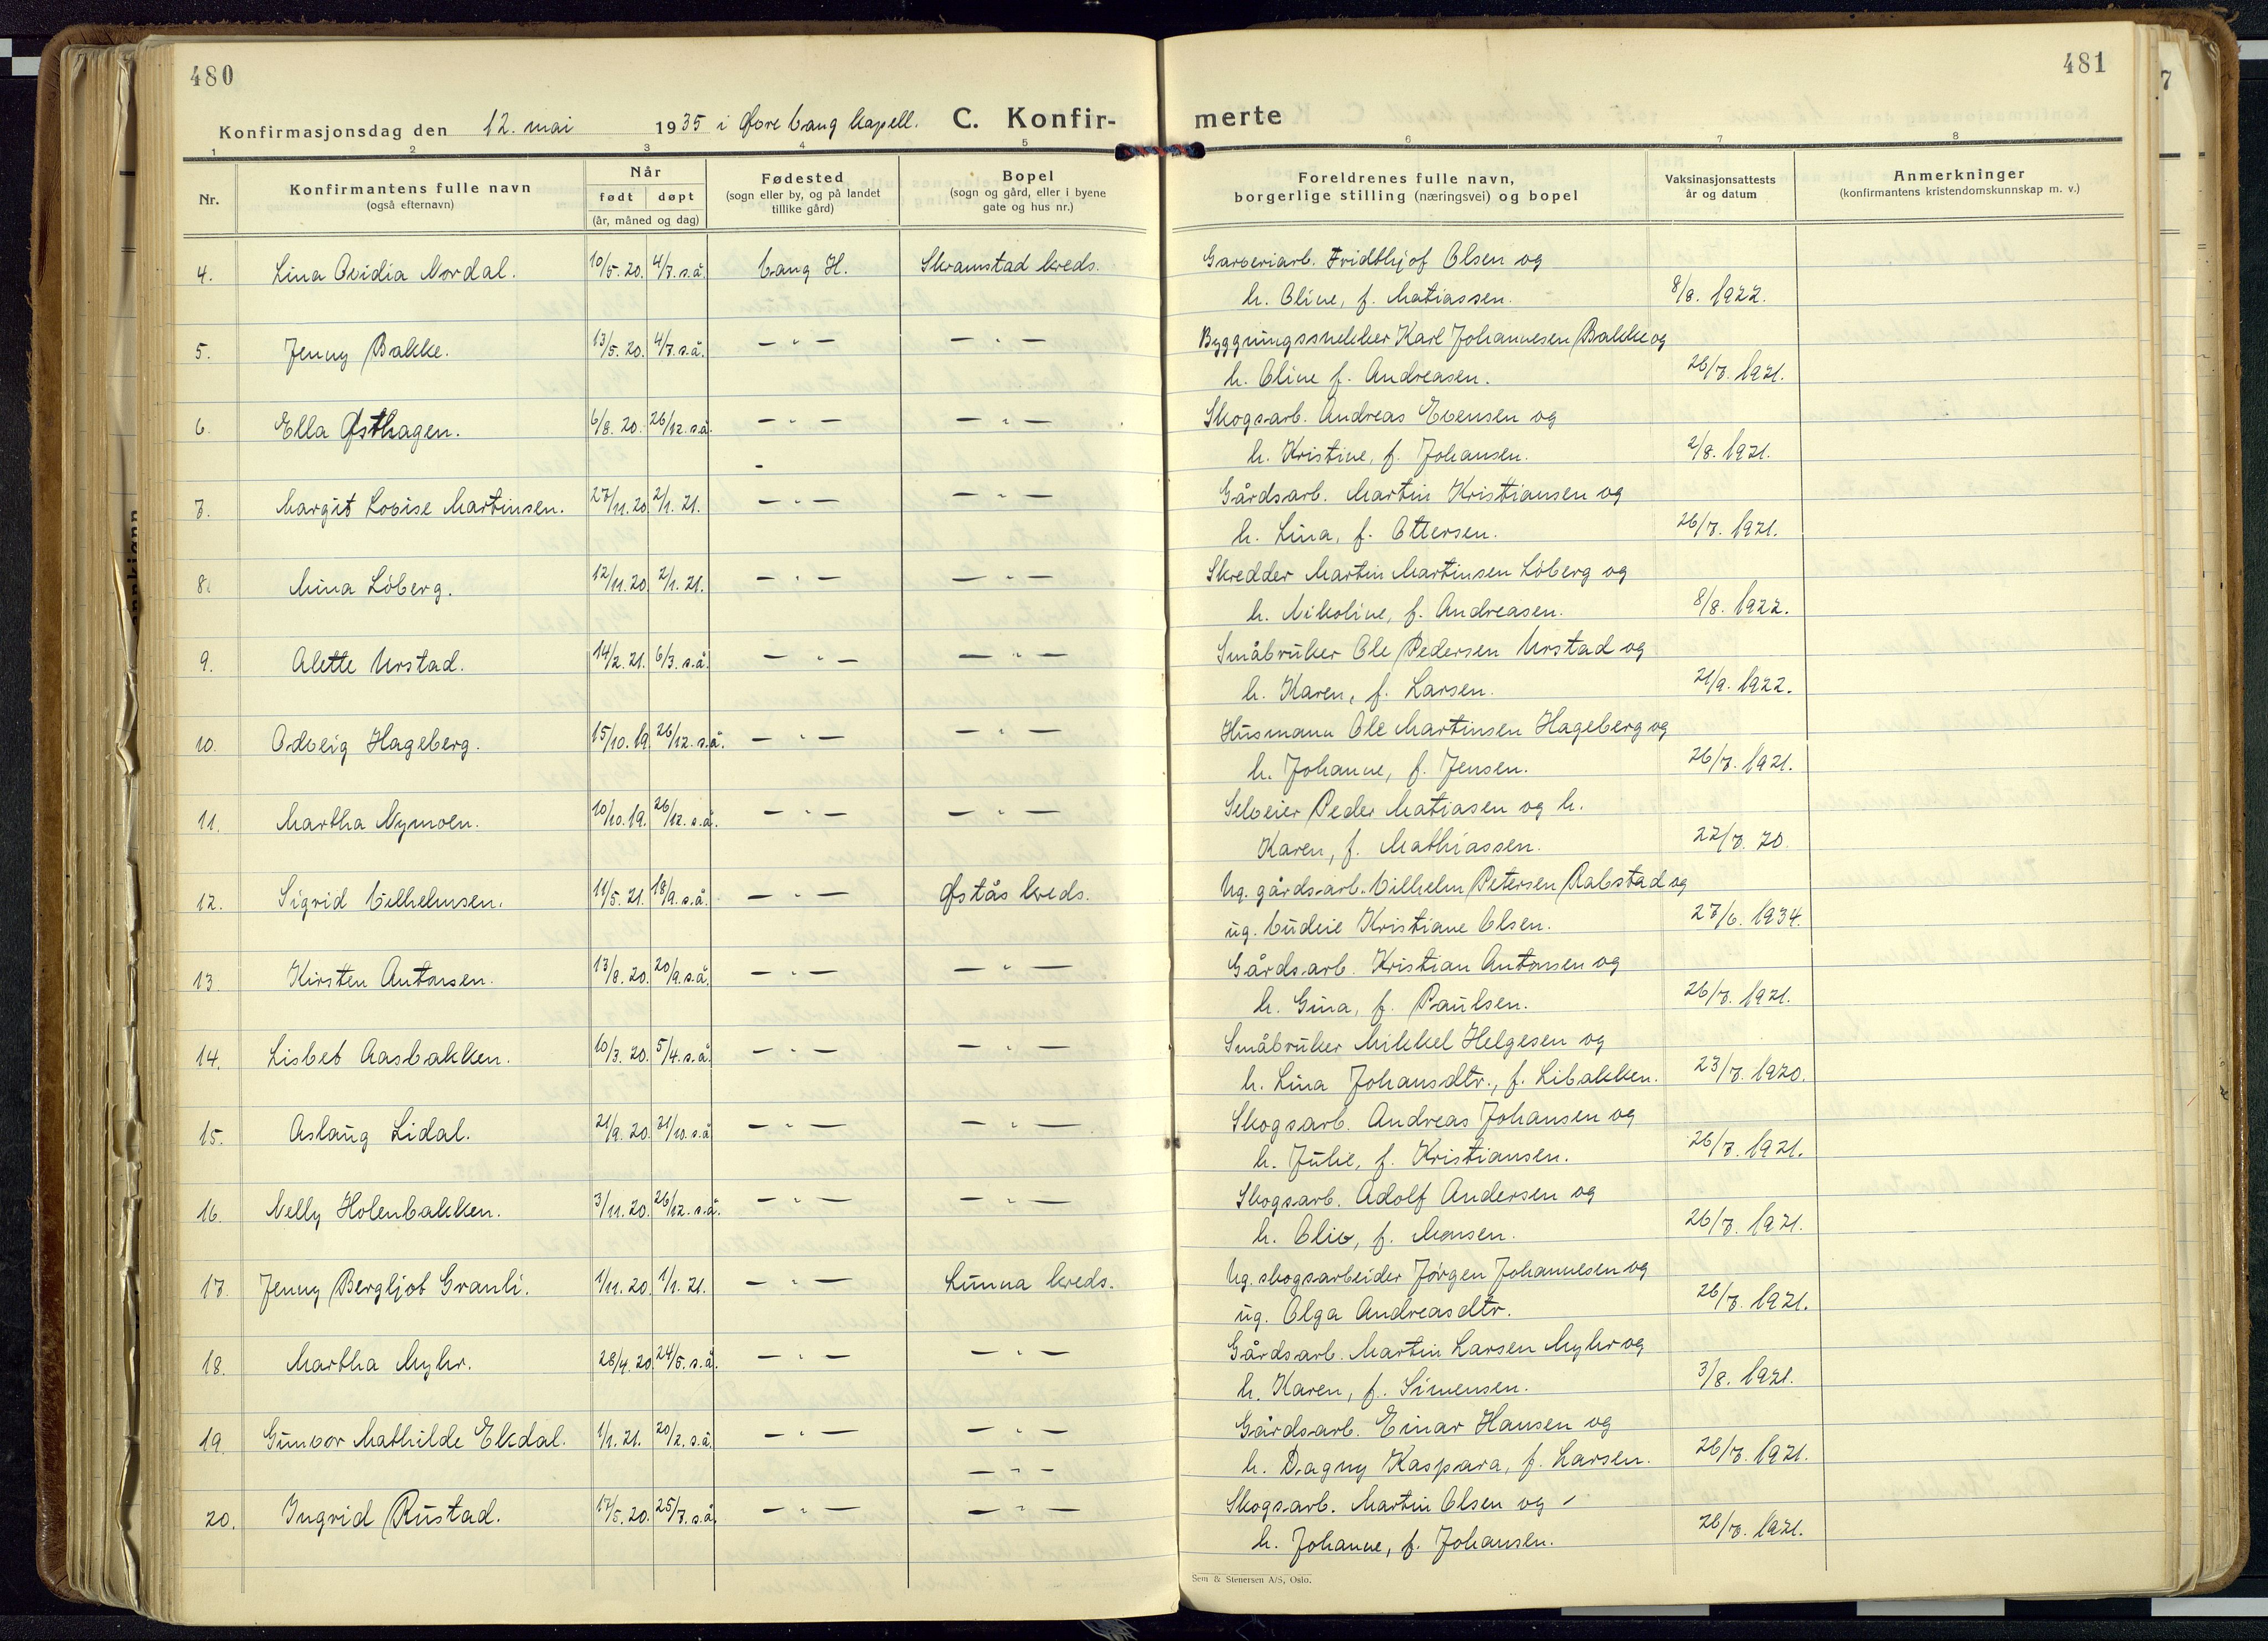 480
481
Konfirmasjonsdag den 12. mai 1935 i Øvre Vang kapell. C. Konfir- merte
1 2 3 4 5 6 7 8
Nr.
Konfirmantens fulle navn
(også efternavn)
Når
født døpt
(år, måned og dag)
Fødested
(sogn eller by, og på landet
tillike gård)
Bopel
(sogn og gård, eller i byene
gate og hus nr.)
Foreldrenes fulle navn,
borgerlige stilling (næringsvei) og bopel
Vaksinasjonsattests
år og datum
Anmerkninger
(konfirmantens kristendomskunnskap m. v.)
4. Lina Ovidia Nordal. 10/5. 20. 4/7. s.å. Vang H. Skramstad kreds. Garveriarb. Fridthjof Olsen og
h. Oline, f. Matiassen. 8/8. 1922.
5. Jenny Bakke. 13/5. 20. 4/7. s.å. — " — — " — Byggningssnekker Karl Johannesen Bakke og
h. Oline f. Andreasen. 26/7. 1921.
6. Ella Østhagen. 6/8. 20. 26/12. s.å. — " — — " — Skogsarb. Andreas Evensen og
h. Kristine, f. Johansen. 2/8. 1921.
7. Margit Lovise Martinsen. 27/11. 20 2/1. 21. — " — — " — Gårdsarb. Martin Kristiansen og
h. Lina, f. Ottersen. 26/7. 1921.
8. Mina Löberg. 12/11. 20. 2/1. 21. — " — — " — Skredder Martin Martinsen Löberg og
h. Nikoline, f. Andreasen. 8/8. 1922.
9. Alette Urstad. 14/2. 21. 6/3. s.å. — " — — " — Småbruker Ole Pedersen Urstad og
h. Karen, f. Larsen. 21/9. 1922.
10. Odveig Hageberg. 15/10. 19. 26/12. s.å. — " — — " — Husmann Ole Martinsen Hageberg og
h. Johanne, f. Jensen. 26/7. 1921.
11. Martha Nymoen. 10/10. 19. 26/12. s.å. — " — — " — Selveier Peder Matiasen og h.
Karen, f. Mathiassen. 22/7. 20.
12. Sigrid Vilhelmsen. 11/5. 21. 18/9. s.å. — " — Østås kreds. Ug. gårdsarb. Vilhelm Petersen Rabstad og
ug. budeie Kristiane Olsen. 27/6. 1934.
13. Kirsten Antonsen. 13/8. 20. 20/9. s.å. — " — — " — Gårdsarb. Kristian Antonsen og
h. Gina, f. Paulsen. 26/7. 1921.
14. Lisbet Aasbakken. 10/3. 20. 5/4. s.å. — " — — " — Småbruker Mikkel Helgesen og
h. Lina Johansdtr., f. Libakken. 23/7. 1920.
15. Aslaug Lidal. 21/9. 20. 31/10. s.å — " — — " — Skogsarb. Andreas Johansen og
h. Julie, f. Kristiansen. 26/7. 1921.
16. Nelly Holenbakken. 3/11. 20. 26/12. s.å. — " — — " — Skogsarb. Adolf Andersen og
h. Oliv, f. Monsen. 26/7. 1921.
17. Jenny Bergljot Granli. 1/11. 20. 1/1. 21. — " — Lunna kreds. Ug. skogsarbeider Jørgen Johannesen og
ug. Olga Andreasdtr. 26/7. 1921.
18. Martha Myhr. 28/4. 20 24/5. s.å. — " — — " — Gårdsarb. Martin Larsen Myhr og
h. Karen, f. Simensen. 3/8. 1921.
19. Gunvor Mathilde Ekdal. 1/1. 21. 20/2. s.å. — " — — " — Gårdsarb. Einar Hansen og
— " — h. Dagny Kaspara, f. Larsen. 26/7. 1921.
20. Ingrid Rustad. 17/5. 20. 25/7. s.å. — " — — " — Skogsarb. Martin Olsen og
h. Johanne, f. Johansen. 26/7. 1921.
Sem & Stenersen A/S, Oslo.